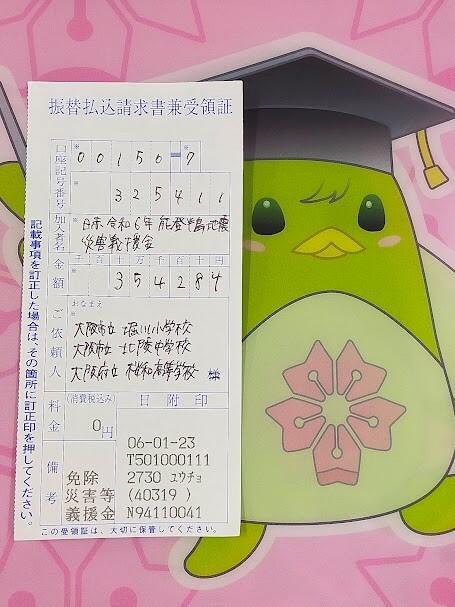 振替払込請求書兼受領証
口座記号番号
※
00150=7
※
325411
加入者名
日赤 令和6年 能登半島地震
災害義援金
金額
千百十万千百十円
※
354284
ご依頼人
おなまえ
※
大阪市立 堀川小学校
大阪市立 北稜中学校
大阪府立 桜和高等学校 様
料金
(消費税込み)
0円
日附印
06-01-23
T501000111
2730 ユウチョ
(40319 )
N94110041
備考
免除
災害等
義援金
記載事項を訂正した場合は、その箇所に訂正印を押してください。
この受領証は、大切に保管してください。